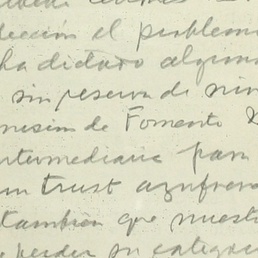 dirección el problema
ha dictado alguna
sin reserva de nin
misión de Fomento
intermediaria para
un trust azufrero
también que nuestr
perder su categor